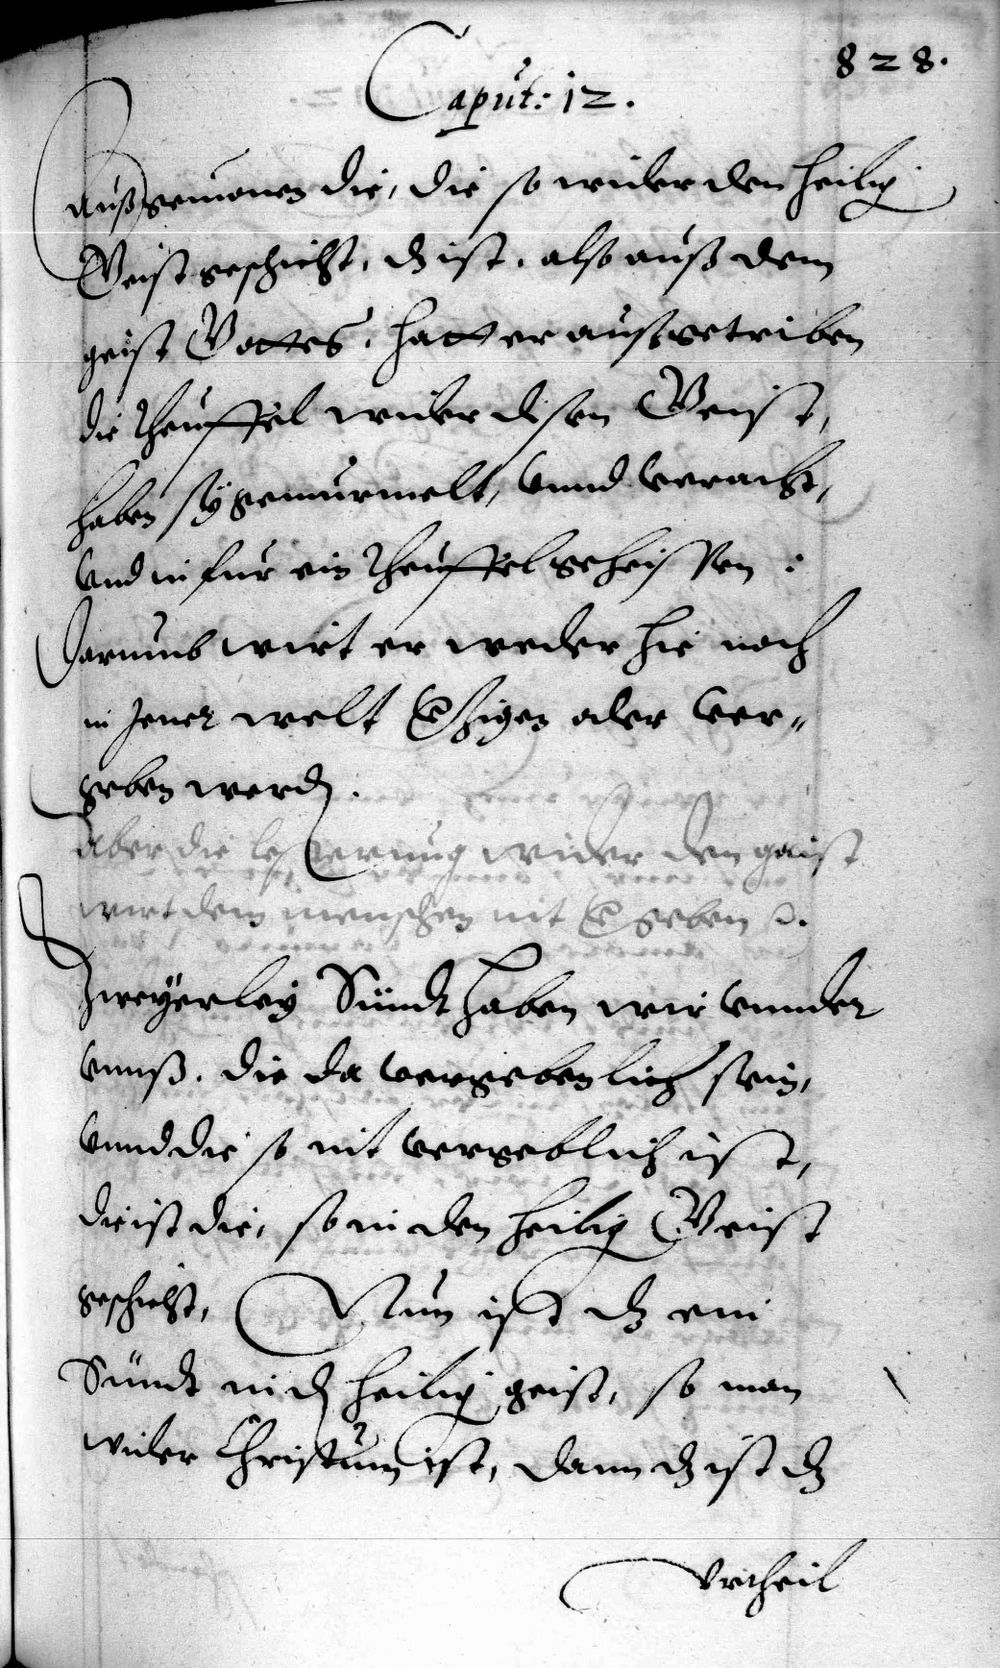 828.
Caput: 12.
außgenomen die, die so wider den heilig
Geist geschicht, dz ist, also auß dem
geist Gottes, hatt er außgetriben
die Theuffel wider disen Geist,
haben sy gemurmelt, vnnd veracht,
vnd in für ein Theuffel geheissen :
Darumb wirt er weder hie noch
in Jener welt vzigen oder ver„
geben werdn.
Aber die lesterung wider den gaist
wirt dem menschen nit vgeben s.
Zweyerley Sündt haben wir vnnder
vnnß. die da vergebenlich sein,
vnnd die so nit vergeblich ist,
die ist die, so in den heilig Geist
geschicht, Nun ist dz ein
Sündt in dn heilig geist, so man
wider Christum ist, dann dz ist dz
Vrtheil